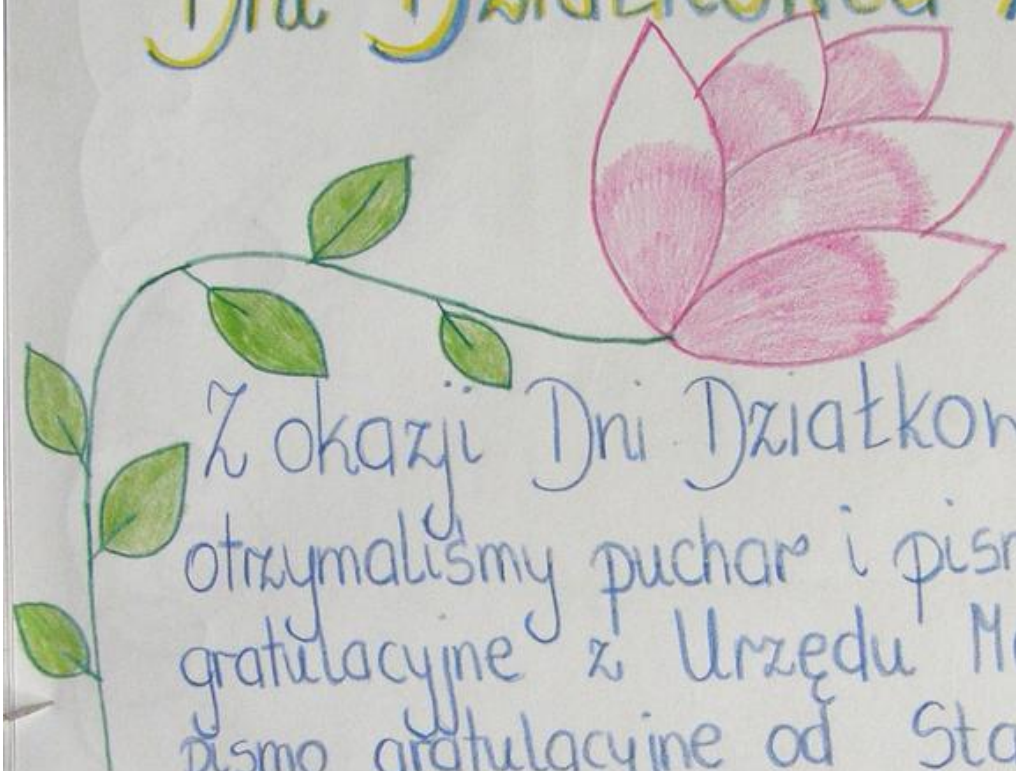 Dni Działkowca
Z okazji Dni Działkow
otrzymaliśmy puchar i pism
gratulacyjne z Urzędu M
pismo gratulacyjne od Sta